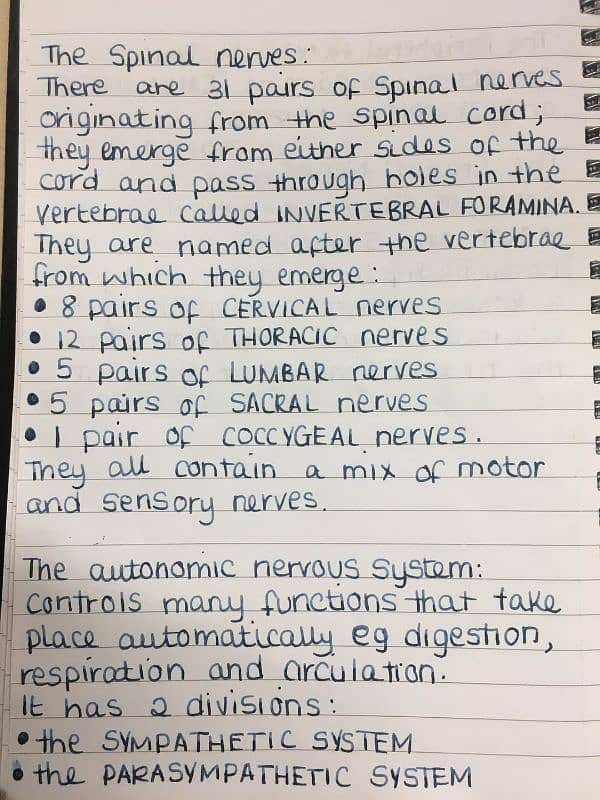 The Spinal nerves:
There are 31 pairs of Spinal nerves
originating from the spinal cord;
they emerge from either sides of the
cord and pass through holes in the
vertebrae called INVERTEBRAL FORAMINA.
They are named after the vertebrae
from which they emerge:
• 8 pairs of CERVICAL nerves
• 12 pairs of THORACIC nerves
• 5 pairs of LUMBAR nerves
• 5 pairs of SACRAL nerves
• 1 pair of COCCYGEAL nerves.
They all contain a mix of motor
and sensory nerves.
The autonomic nervous system:
Controls many functions that take
place automatically eg digestion,
respiration and circulation.
It has 2 divisions:
• the SYMPATHETIC SYSTEM
• the PARASYMPATHETIC SYSTEM